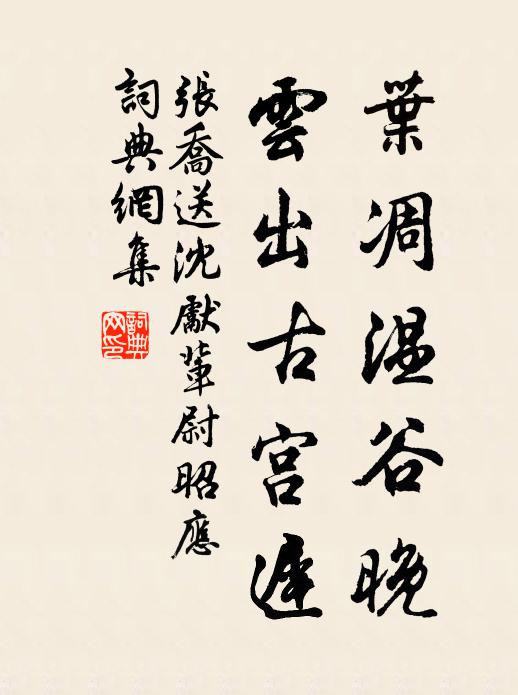 葉凋温谷晚
雲出古宫遲
張喬送沈獻輩尉昭應
詞典網集
詞典网印